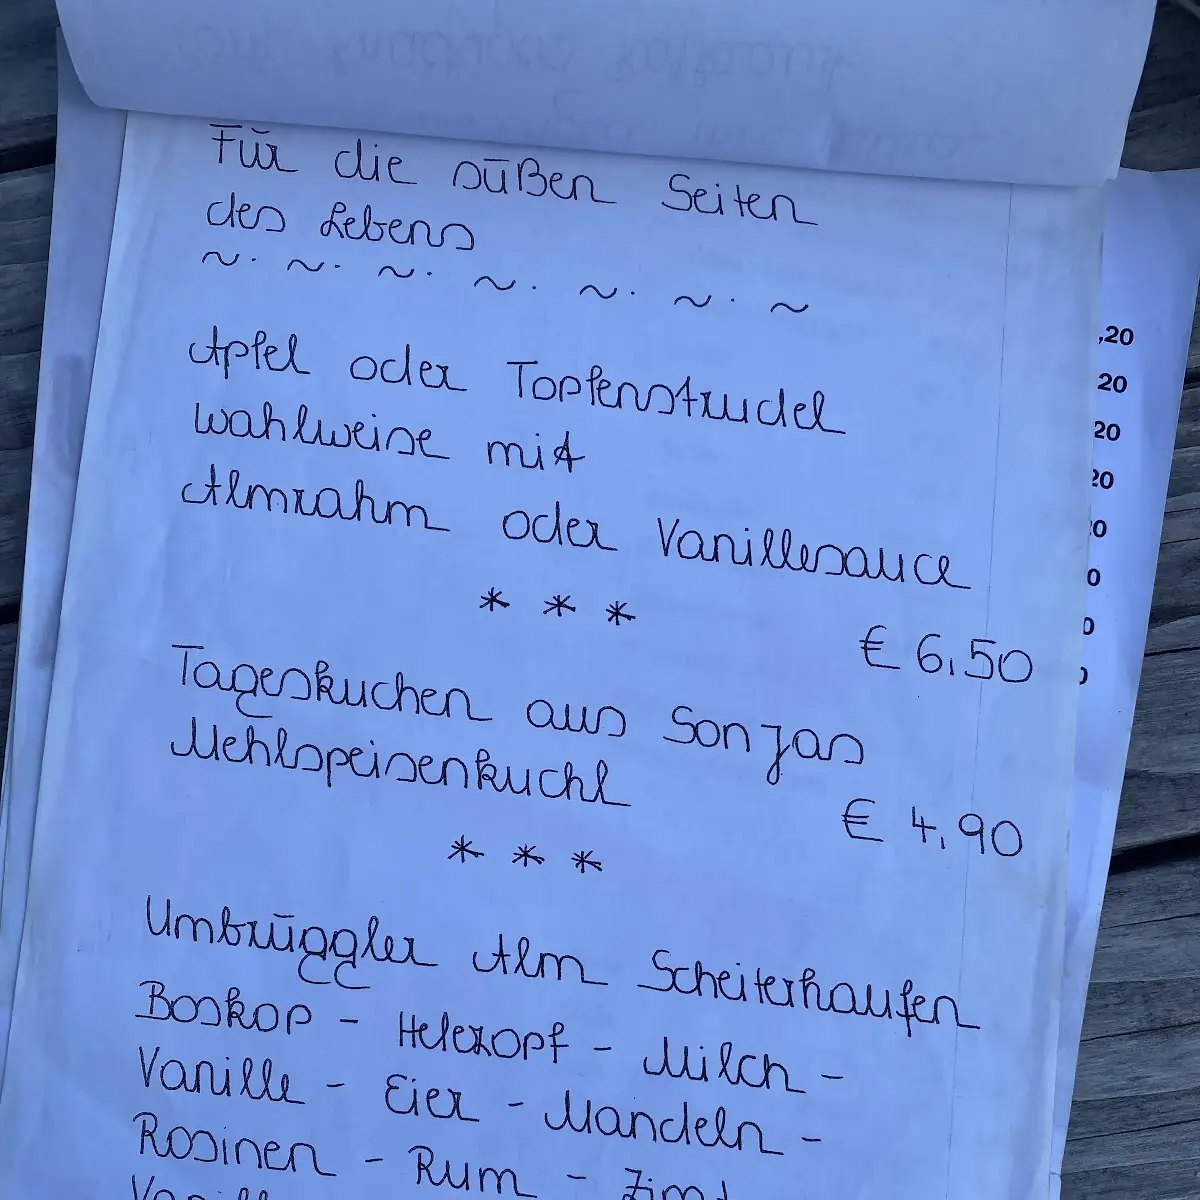 Für die süßen Seiten
des Lebens
~ · ~ · ~ · ~ · ~ · ~ · ~
Apfel oder Topfenstrudel
wahlweise mit
Almrahm oder Vanillesauce
* * *
€ 6,50
Tageskuchen aus Sonjas
Mehlspeisenkuchl
€ 4,90
* * *
Umbrüggler Alm Scheiterhaufen
Boskop - Hefezopf - Milch -
Vanille - Eier - Mandeln -
Rosinen - Rum - Zimt
,20
20
20
20
0
0
0